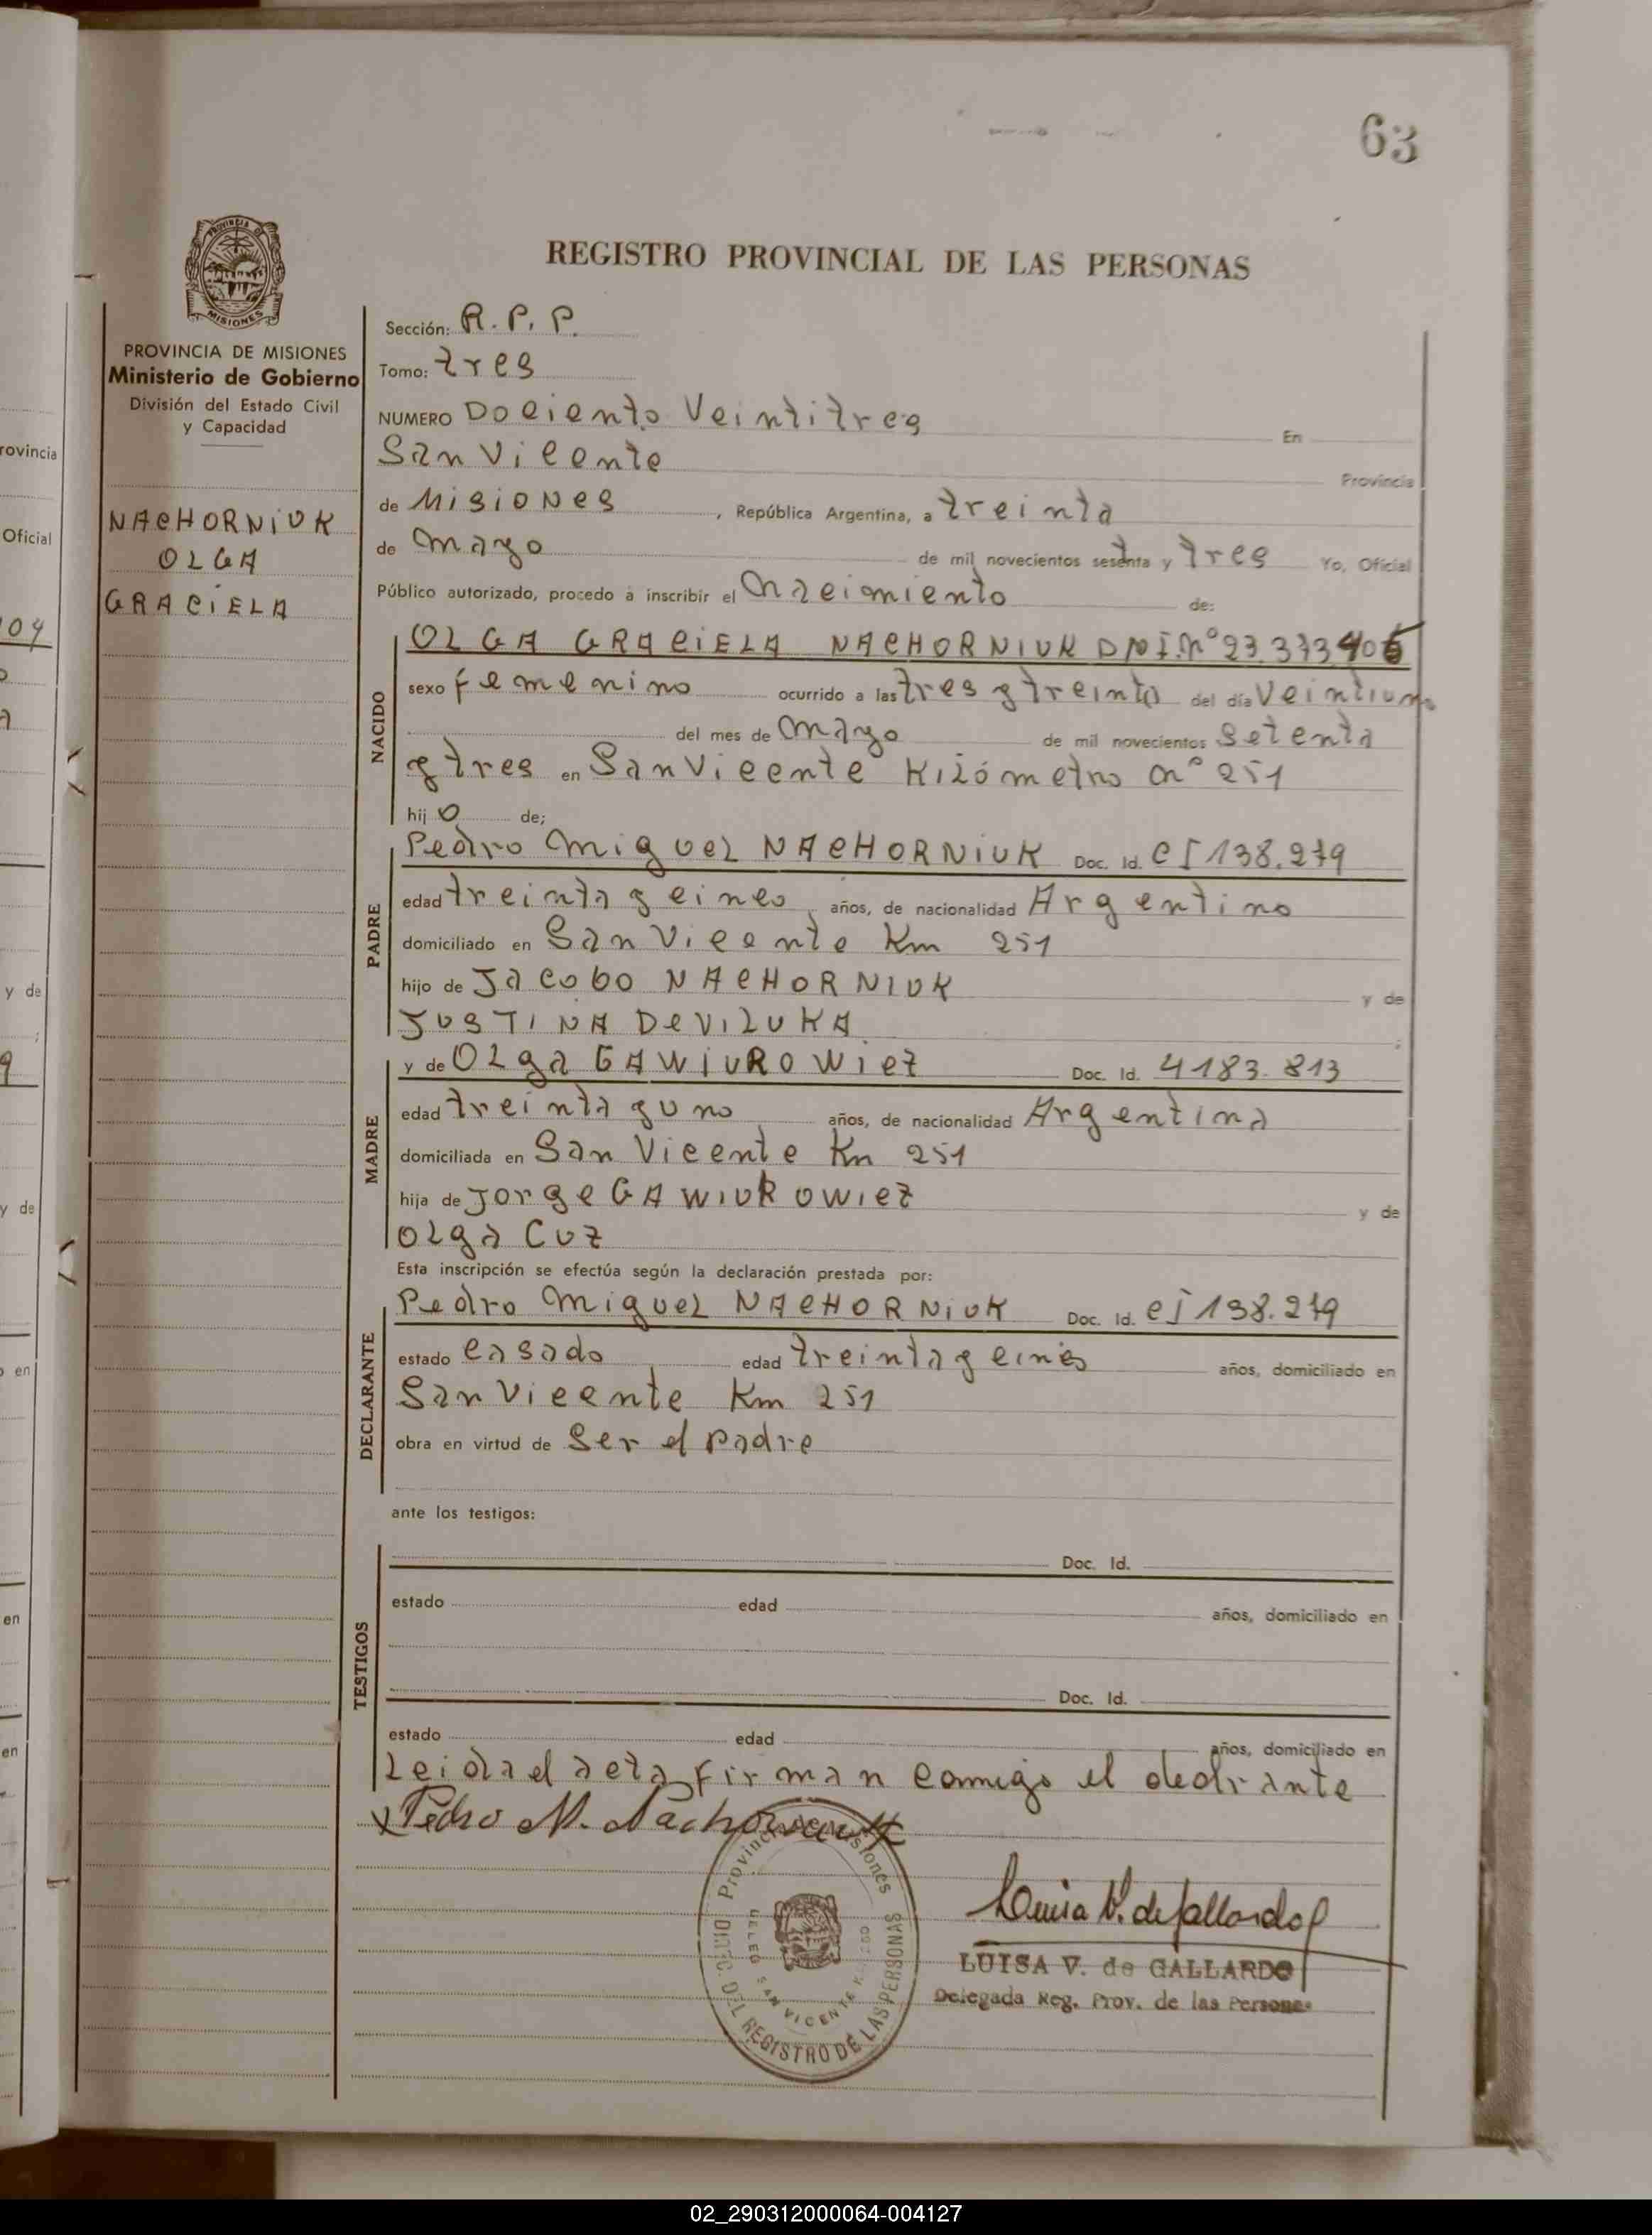 63
REGISTRO PROVINCIAL DE LAS PERSONAS
MISIONES
PROVINCIA DE MISIONES
Ministerio de Gobierno
División del Estado Civil
y Capacidad
NACHORNIUK
OLGA
GRACIELA
Sección: R.P.P.
Tomo: tres
NUMERO Dociento Veintitres En
San Vicente Provincia
de Misiones, República Argentina, a treinta
de mayo de mil novecientos setenta y tres Yo, Oficial
Público autorizado, procedo a inscribir el nacimiento de:
NACIDO
OLGA GRACIELA NACHORNIUK DNI.Nº 23.373.406
sexo femenino ocurrido a las tres y treinta del día veintiuno
del mes de mayo de mil novecientos setenta
y tres en San Vicente Kilómetro nº 251
hijo de;
PADRE
Pedro Miguel NACHORNIUK Doc. Id. CI 138.279
edad treinta y cinco años, de nacionalidad Argentino
domiciliado en San Vicente Km 251
hijo de Jacobo NACHORNIUK y de
JUSTINA DEVILUKA ;
MADRE
y de Olga GAWIUROWICZ Doc. Id. 4183.813
edad treinta y uno años, de nacionalidad Argentina
domiciliada en San Vicente Km 251
hija de Jorge GAWIUROWICZ y de
Olga Cuz
Esta inscripción se efectúa según la declaración prestada por:
DECLARANTE
Pedro Miguel NACHORNIUK Doc. Id. CI 138.279
estado casado edad treinta y cinco años, domiciliado en
San Vicente Km 251
obra en virtud de Ser el padre
ante los testigos:
TESTIGOS
Doc. Id.
estado edad años, domiciliado en
Doc. Id.
estado edad años, domiciliado en
Leida el acta firman conmigo el declrante
Pedro M. Nachorniuk
Provincia Misiones
DIREC. DEL REGISTRO DE LAS PERSONAS
DELEG SAN VICENTE
Luisa V. de Gallardo
LUISA V. de GALLARDO
Delegada Reg. Prov. de las Personas
rovincia
Oficial
04
y de
;
9
y de
en
en
en
02_290312000064-004127